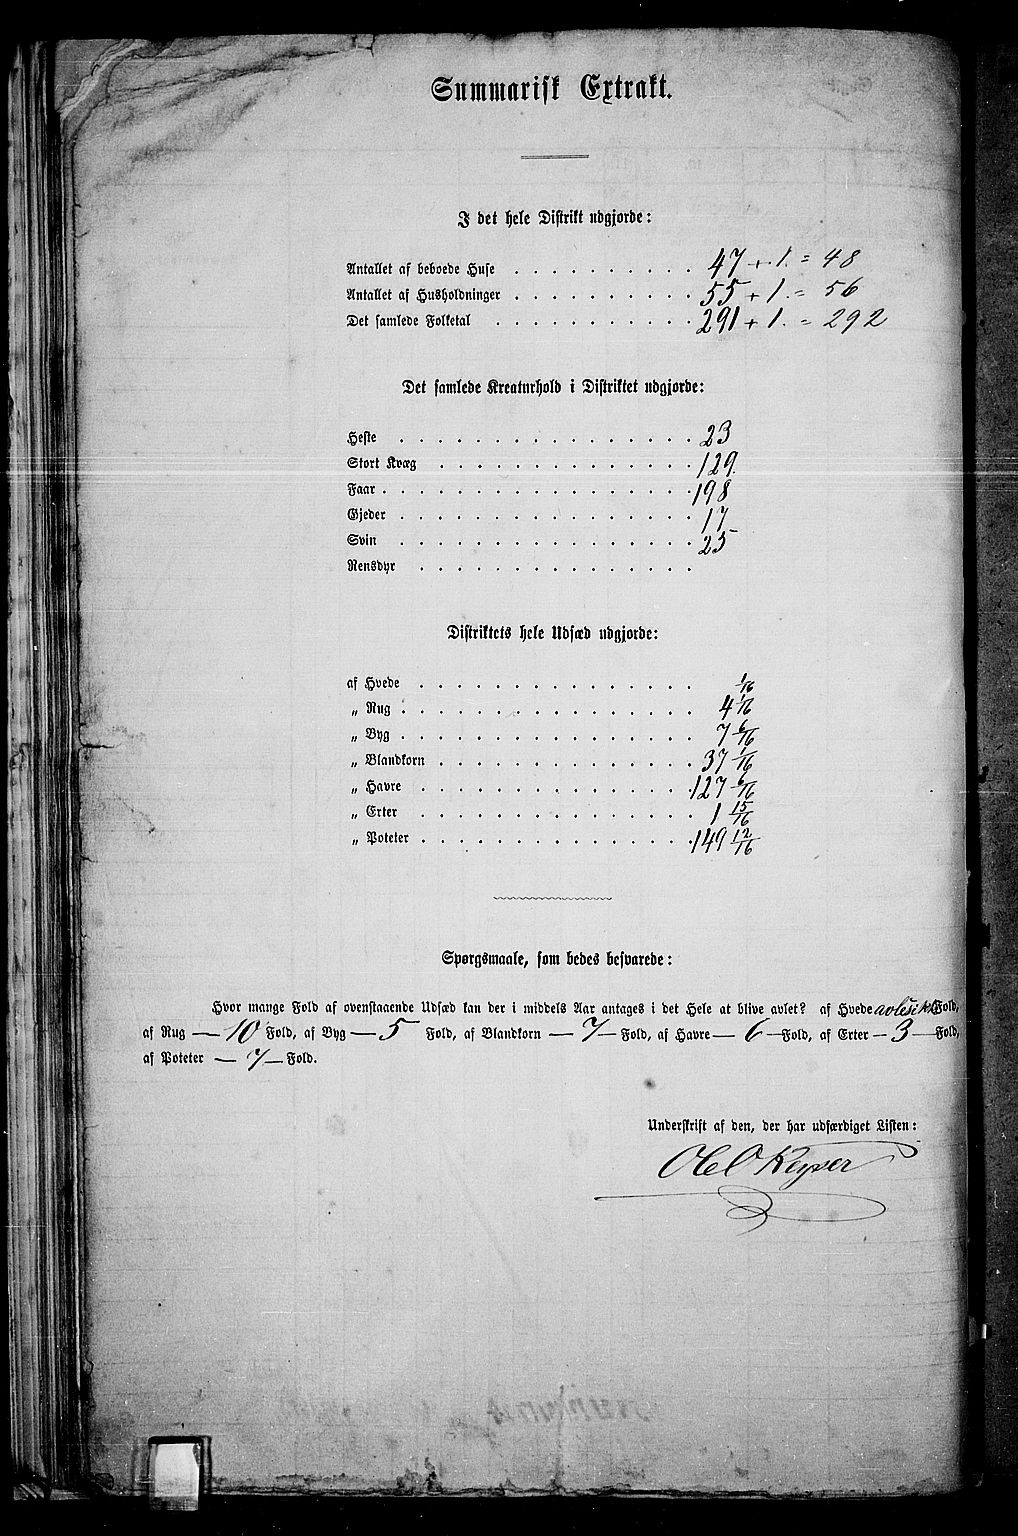 Summarisk Extrakt.
I det hele Distrikt udgjorde:
Antallet af beboede Huse . . . . . . . . . . 47 + 1. = 48
Antallet af Husholdninger . . . . . . . . . . 55 + 1. = 56
Det samlede Folketal . . . . . . . . . . . 291 + 1. = 292
Det samlede Kreaturhold i Distriktet udgjorde:
Heste . . . . . . . . . . . . . . . . 23
Stort Kvæg . . . . . . . . . . . . . . 129.
Faar . . . . . . . . . . . . . . . . . 198
Gjeder . . . . . . . . . . . . . . . . 17
Svin . . . . . . . . . . . . . . . . 25
Rensdyr . . . . . . . . . . . . . . .
Distriktets hele Udsæd udgjorde:
af Hvede . . . . . . . . . . . . . . . 1/16
„ Rug . . . . . . . . . . . . . . . . 4 1/16
„ Byg . . . . . . . . . . . . . . . . 7 6/16
„ Blandkorn . . . . . . . . . . . . . . 37 1/16
„ Havre . . . . . . . . . . . . . . . 127 6/16
„ Erter . . . . . . . . . . . . . . . 1 15/16
„ Poteter . . . . . . . . . . . . . . . 149 12/16
Spørgsmaale, som bedes besvarede:
Hvor mange Fold af ovenstaaende Udsæd kan der i middels Aar antages i det Hele at blive avlet? af Hvede avles ikke Fold,
af Rug — 10 Fold, af Byg — 5 Fold, af Blandkorn — 7 — Fold, af Havre — 6 — Fold, af Erter — 3 — Fold,
af Poteter — 7 — Fold.
Underskrift af den, der har udfærdiget Listen:
Keyser